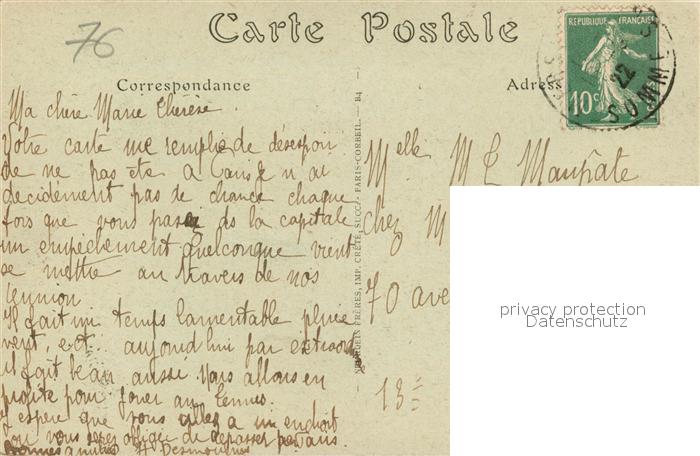 76
Carte Postale
RÉPUBLIQUE FRANÇAISE
10c
22
SOMME
Correspondance
Adresse
Ma chère Marie Thérèse.
Votre carte me remplie de désespoir
de ne pas etre a Paris je n'ai
decidément pas de chance chaque
fois que vous passez ds la capitale
un empêchement quelconque vient
se mettre au travers de nos
reunion
Il fait un temps lamentable pluie
vent, ect. aujourd'hui par extraord
il fait beau aussi nous allons en
profite pour jouer au tennis.
J'espère que vous allez a un endroit
ou vous serez obliger de repasser par Paris.
Bonnes amitiés H Desmoulins
NEURDEIN FRÈRES, IMP. CRÉTÉ, SUCCr - PARIS-CORBEIL. - B4
Melle M T Maupate
chez M
70 ave
13=
privacy protection
Datenschutz